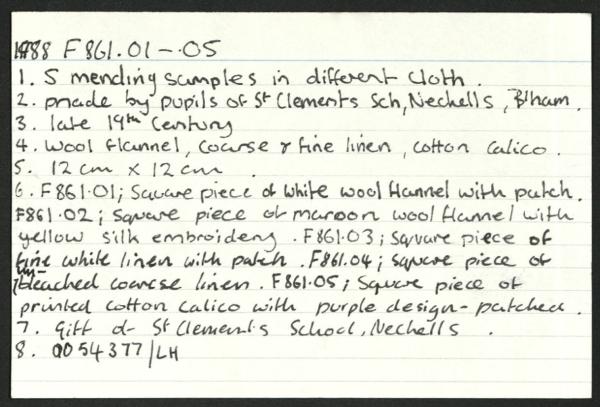 1988 F861.01 - .05
1. 5 mending samples in different cloth.
2. made by pupils of St Clements Sch, Nechells, B'ham.
3. late 19th Century
4. wool flannel, coarse & fine linen, cotton calico.
5. 12 cm x 12 cm.
6. F861.01; Square piece of white wool flannel with patch.
F861.02; square piece of maroon wool flannel with
yellow silk embroidery. F861.03; square piece of
fine white linen with patch. F861.04; square piece of
un-bleached coarse linen. F861.05; Square piece of
printed cotton calico with purple design - patched.
7. Gift of St Clements School, Nechells.
8. 0054377/LH